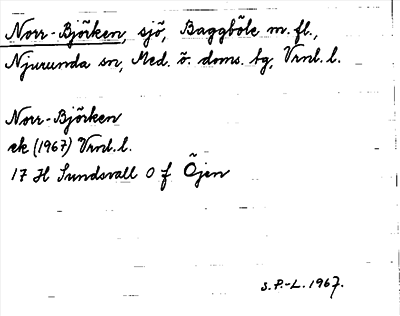 Norr-Björken, sjö, Baggböle m. fl.,
Njurunda sn, Med. ö. doms. tg, Vrnl. l.
Norr-Björken
ek (1967) Vrnl. l.
17 H Sundsvall O f Öjen
S. P.-L. 1967.